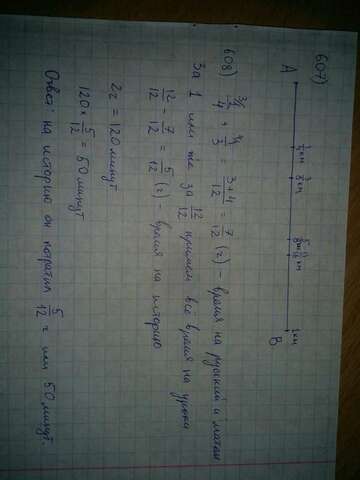 607)
A
1/2 км
3/8 км
5/8 км
1 км
B
608) 3/ 1/4 + 4/ 1/3 = 3+4/12 = 7/12 (г) - время на русский и матем
За 1 или же за 12/12 примем всё время на уроки
12/12 - 7/12 = 5/12 (г) - время на историю
2г = 120 минут
120 × 5/12 = 50 минут
Ответ: на историю он потратил 5/12 г или 50 минут.